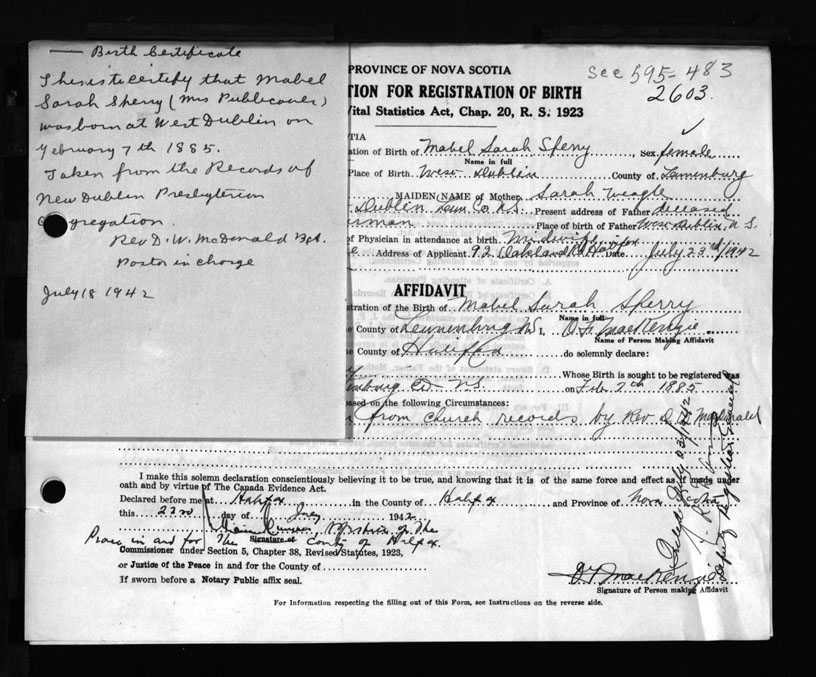 Birth Certificate
This is to certify that Mabel
Sarah Sperry (Mrs Publicover)
was born at West Dublin on
February 7th 1885.
Taken from the Records of
New Dublin Presbyterian
Congregation.
Rev D. W. McDonald
Pastor in charge
July 18 1942
PROVINCE OF NOVA SCOTIA
See 595-483
TION FOR REGISTRATION OF BIRTH
2603
Vital Statistics Act, Chap. 20, R. S. 1923
TIA
ation of Birth of Mabel Sarah Sperry Sex female
Name in full
Place of Birth West Dublin County of Lunenburg
MAIDEN NAME of Mother Sarah Weagle
Dublin Lun. Co. N.S. Present address of Father deceased
Place of birth of Father West Dublin, N S
of Physician in attendance at birth Midwife
Address of Applicant 92 Oakland Rd Halifax Date July 23rd/1942
AFFIDAVIT
stration of the Birth of Mabel Sarah Sperry
Name in full
e County of Lunenburg NS I, MacKenzie
Name of Person Making Affidavit
e County of Halifax do solemnly declare:
Whose Birth is sought to be registered was
nburg Co N.S. on Feb. 7th 1885
ased on the following Circumstances:
from church records by Rev D W McDonald
I make this solemn declaration conscientiously believing it to be true, and knowing that it is of the same force and effect as if made under
oath and by virtue of The Canada Evidence Act.
Declared before me at Halifax in the County of Halifax and Province of Nova Scotia
this 22nd day of July 1942
Signature of
Peace in and for The County of Halifax.
Commissioner under Section 5, Chapter 38, Revised Statutes, 1923,
or Justice of the Peace in and for the County of
If sworn before a Notary Public affix seal.
MacKenzie
Signature of Person making Affidavit
For Information respecting the filling out of this Form, see Instructions on the reverse side.